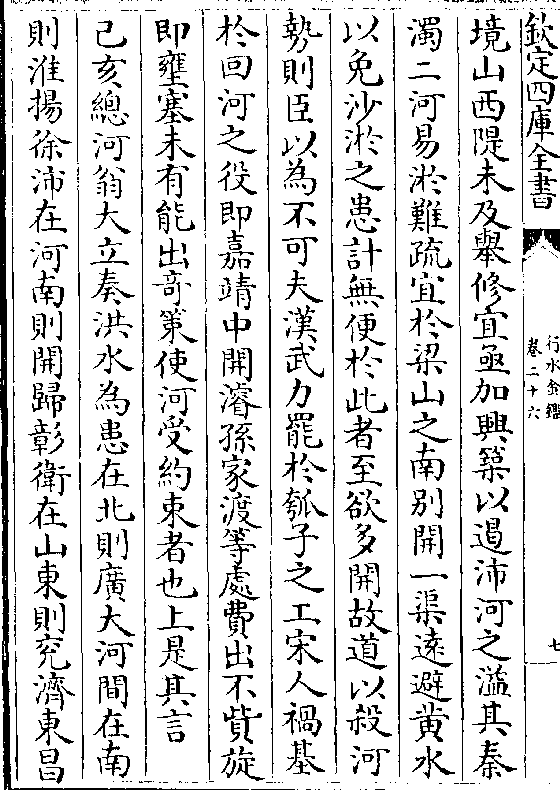 欽定四庫全書
行水金鑑
卷二十六
七
境山西隄未及舉修宜亟加興築以遏沛河之溢其秦
濁二河易淤難疏宜於梁山之南别開一渠遠避黄水
以免沙淤之患計無便於此者至欲多開故道以殺河
勢則臣以為不可夫漢武力罷於瓠子之工宋人禍基
於回河之役即嘉靖中開濬孫家渡等處費出不貲旋
即壅塞未有能出竒策使河受約束者也上是其言
己亥總河翁大立奏洪水為患在北則廣大河間在南
則淮揚徐沛在河南則開歸彰衛在山東則兖濟東昌